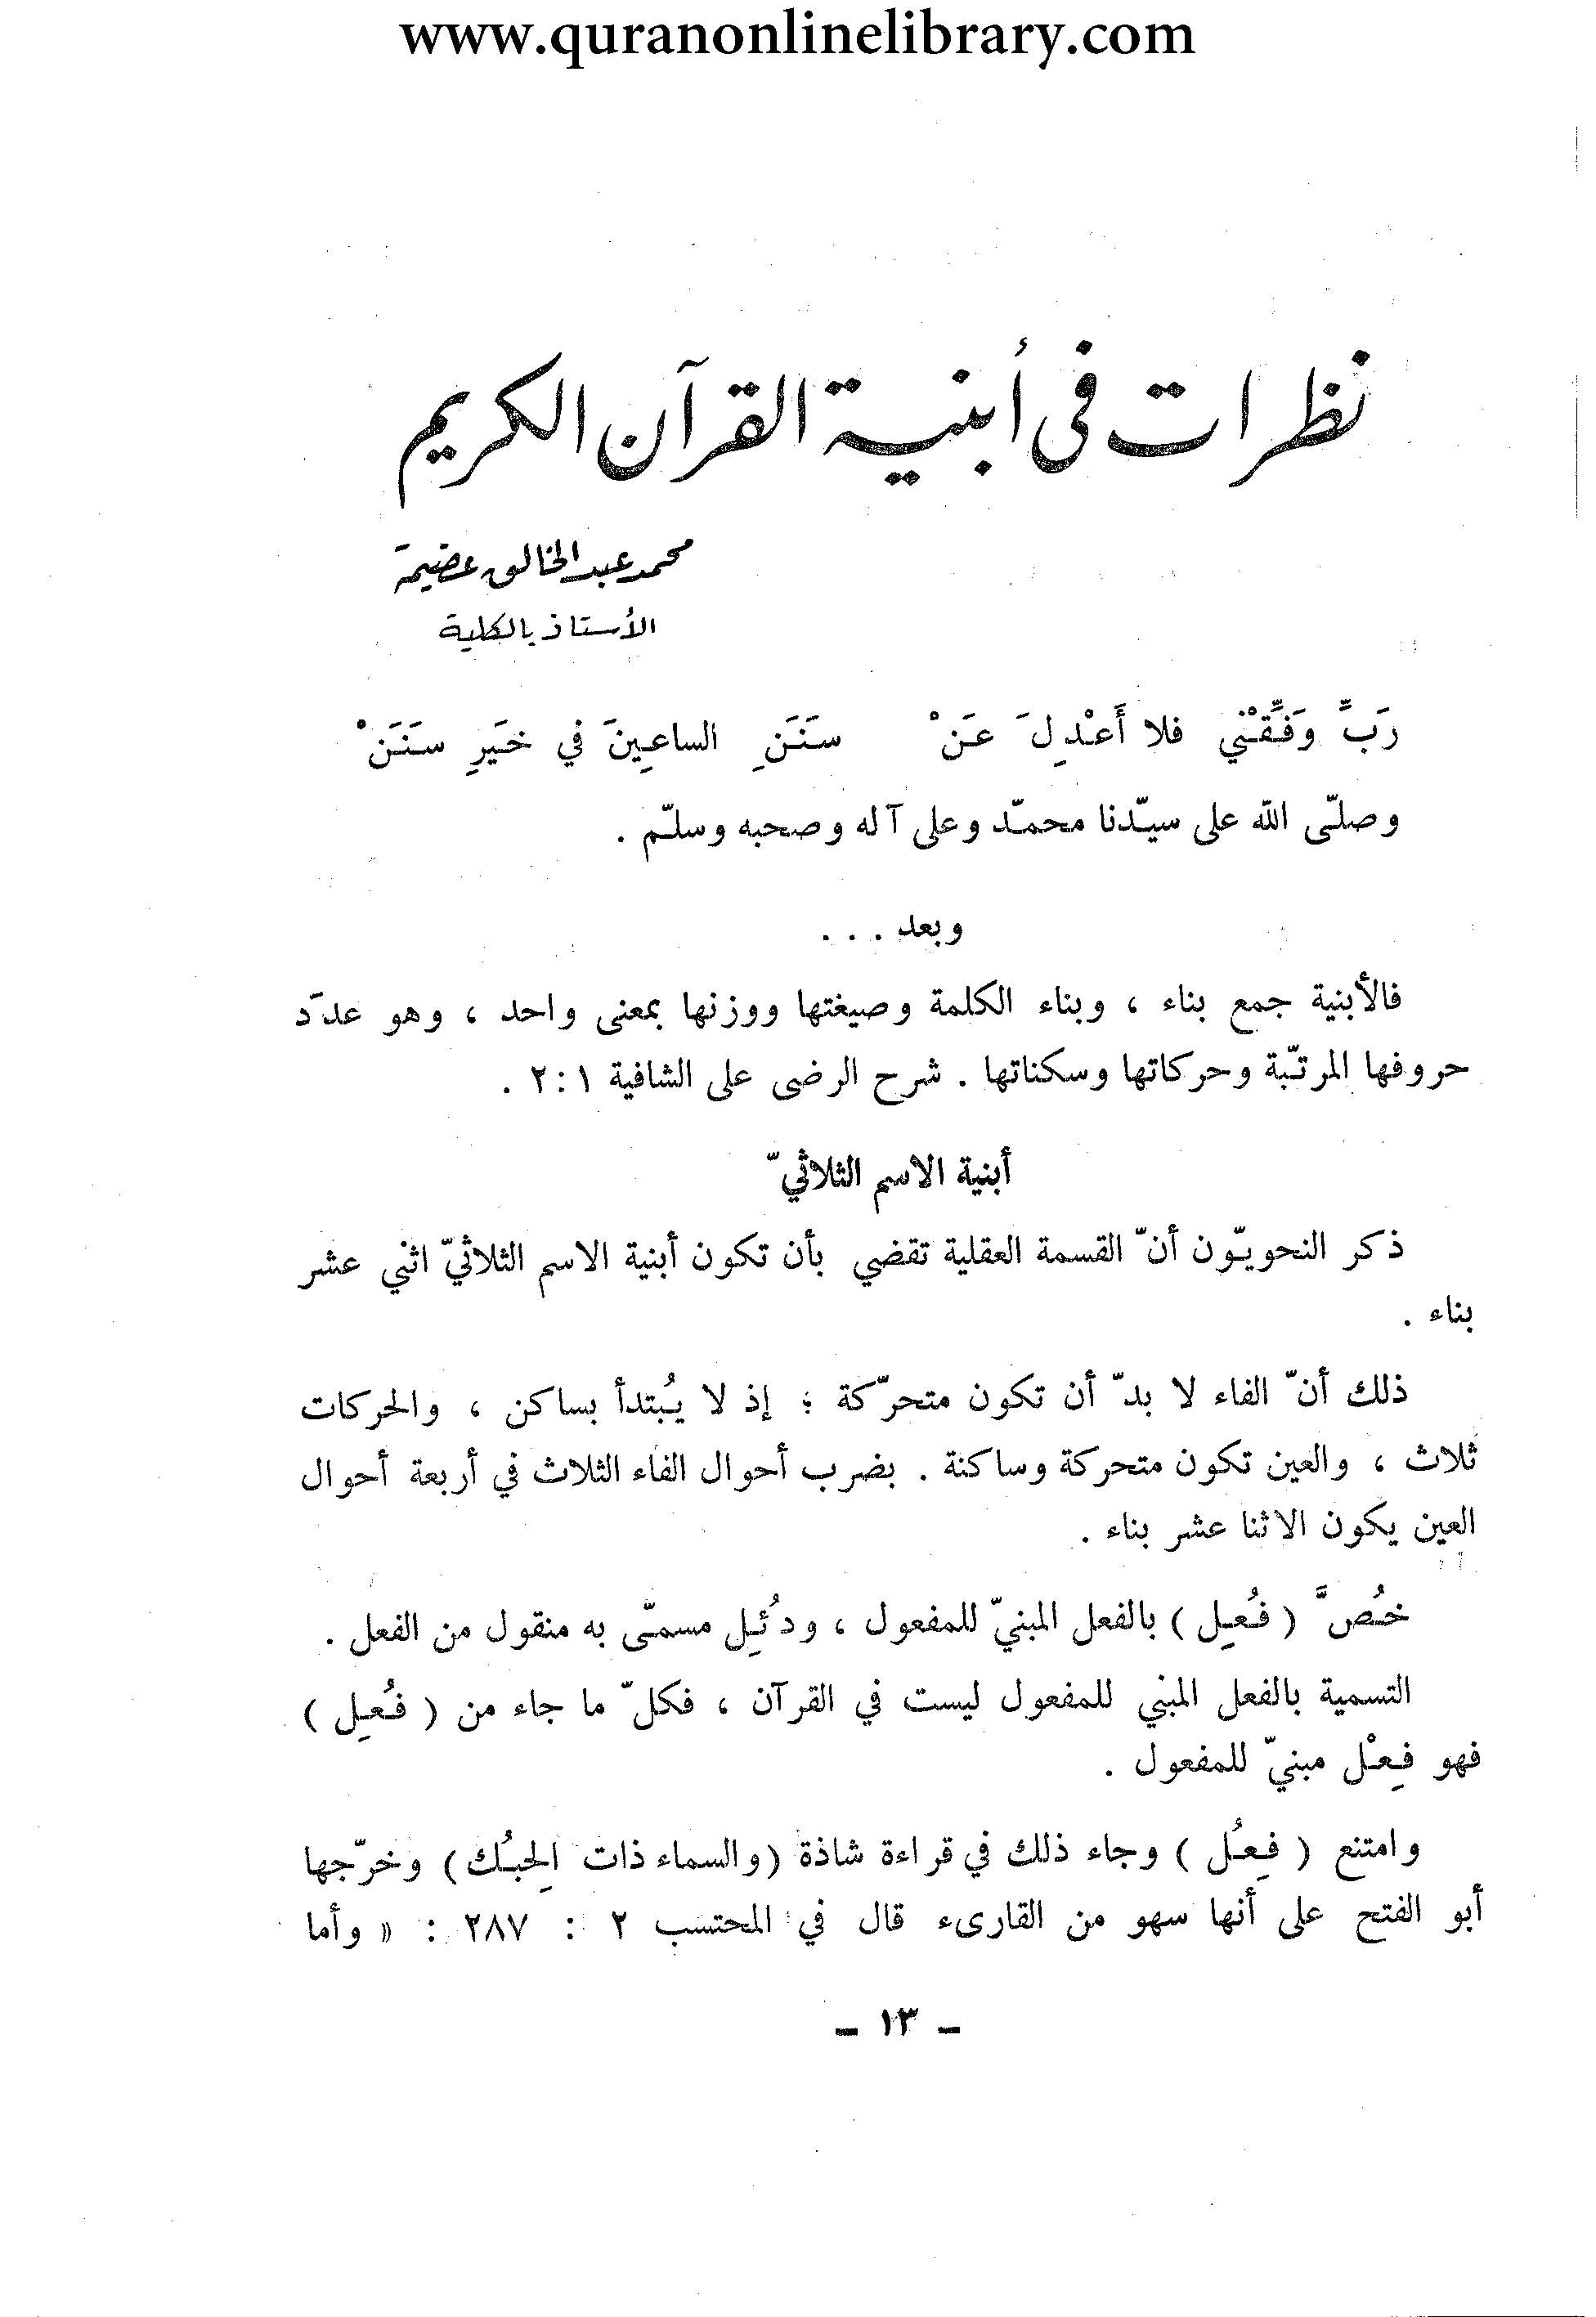 www.quranonlinelibrary.com
نظرات في أبنية القرآن الكريم
محمد عبد الخالق عضيمة
الأستاذ بالكلية
رَبِّ وَفِّقْني فلا أَعْدِلَ عَنْ سَنَنِ الساعِينَ في خَيرِ سَنَنْ
وصلّى الله على سيّدنا محمّد وعلى آله وصحبه وسلّم .
وبعد . . .
فالأبنية جمع بناء ، وبناء الكلمة وصيغتها ووزنها بمعنى واحد ، وهو عدَد
حروفها المرتّبة وحركاتها وسكناتها . شرح الرضى على الشافية ١ : ٢ .
أبنية الاسم الثلاثيّ
ذكر النحويّون أنّ القسمة العقلية تقضي بأن تكون أبنية الاسم الثلاثيّ اثني عشر
بناء .
ذلك أنّ الفاء لا بدّ أن تكون متحرّكة ؛ إذ لا يُبتدأ بساكن ، والحركات
ثلاث ، والعين تكون متحركة وساكنة . بضرب أحوال الفاء الثلاث في أربعة أحوال
العين يكون الاثنا عشر بناء .
خُصَّ ( فُعِل ) بالفعل المبنيّ للمفعول ، ودُئِل مسمّى به منقول من الفعل .
التسمية بالفعل المبني للمفعول ليست في القرآن ، فكلّ ما جاء من ( فُعِل )
فهو فِعْل مبنيّ للمفعول .
وامتنع ( فِعُل ) وجاء ذلك في قراءة شاذة (والسماء ذات الحِبُك) وخرّجها
أبو الفتح على أنها سهو من القارىء قال في المحتسب ٢ : ٢٨٧ : « وأما
– ١٣ –